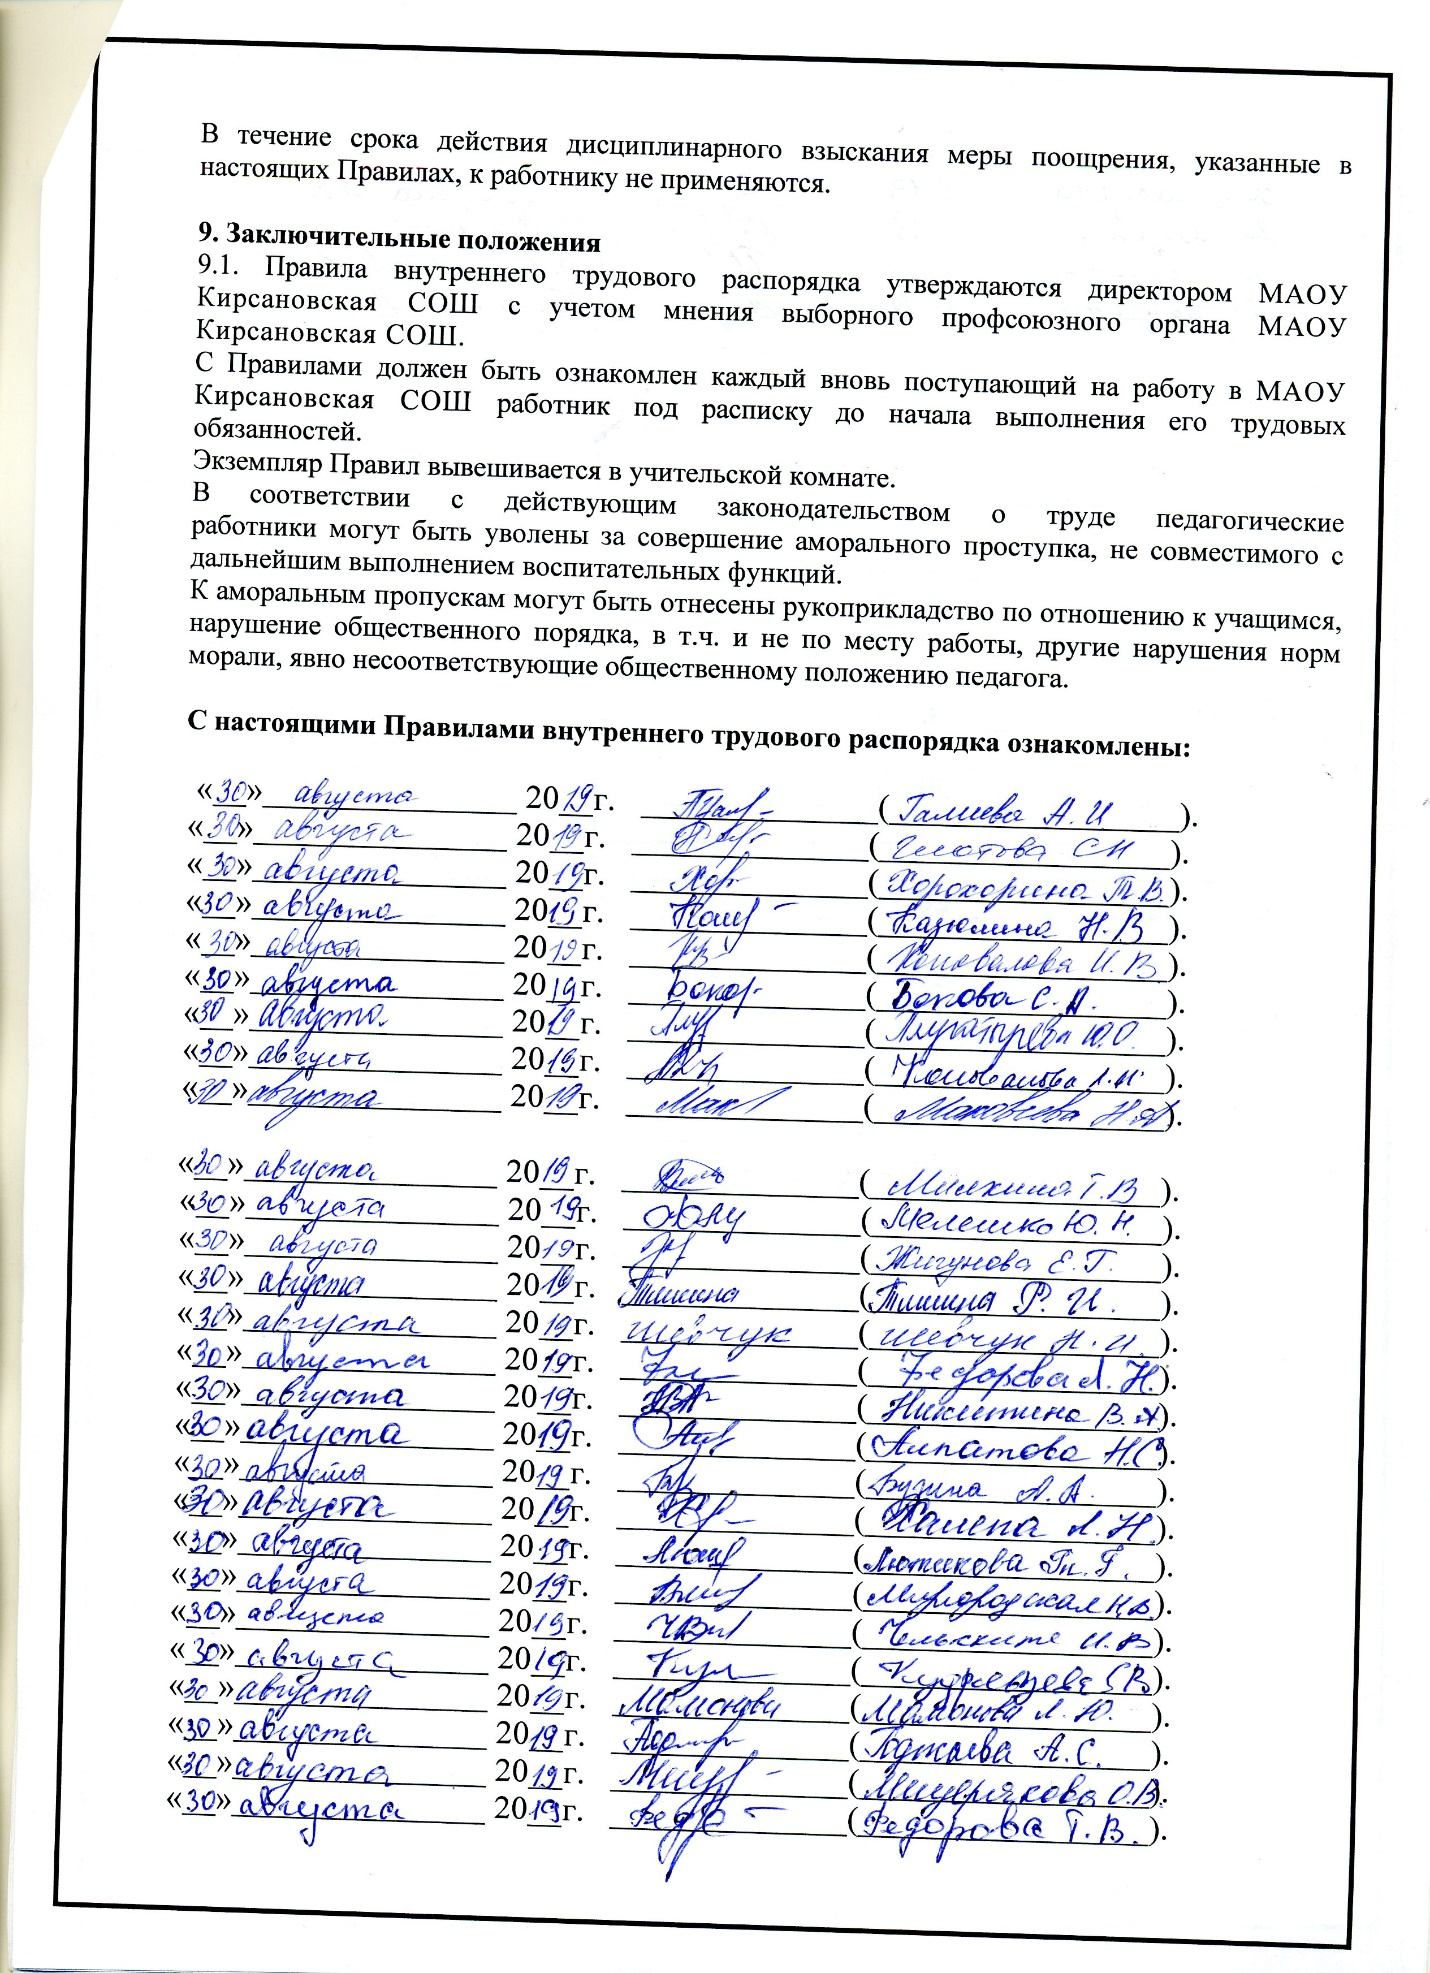 В течение срока действия дисциплинарного взыскания меры поощрения, указанные в
настоящих Правилах, к работнику не применяются.
9. Заключительные положения
9.1. Правила внутреннего трудового распорядка утверждаются директором МАОУ
Кирсановская СОШ с учетом мнения выборного профсоюзного органа МАОУ
Кирсановская СОШ.
С Правилами должен быть ознакомлен каждый вновь поступающий на работу в МАОУ
Кирсановская СОШ работник под расписку до начала выполнения его трудовых
обязанностей.
Экземпляр Правил вывешивается в учительской комнате.
В соответствии с действующим законодательством о труде педагогические
работники могут быть уволены за совершение аморального проступка, не совместимого с
дальнейшим выполнением воспитательных функций.
К аморальным пропускам могут быть отнесены рукоприкладство по отношению к учащимся,
нарушение общественного порядка, в т.ч. и не по месту работы, другие нарушения норм
морали, явно несоответствующие общественному положению педагога.
С настоящими Правилами внутреннего трудового распорядка ознакомлены:
«30» августа 2019г. (Галиева А.И).
«30» августа 2019г. (Глотова СН).
«30» августа 2019г. Хор (Хорохорина Т.В.).
«30» августа 2019г. (Казюлина Н.В).
«30» августа 2019г. (Коновалова И.В).
«30» августа 2019г. (Бокова С.А.).
«30» августа 2019г. (Ю.О.).
«30» августа 2019г. (Коновалова Л.И.).
«30» августа 2019г. (Маковеева Н.А).
«30» августа 2019г. (Милхина Т.В).
«30» августа 2019г. (Мелешко Ю.Н.).
«30» августа 2019г. (Жигунова Е.Г.).
«30» августа 2019г. Тишина (Тишина Р.И.).
«30» августа 2019г. Шевчук (Шевчук Н.И.).
«30» августа 2019г. (Федорова Л.Н.).
«30» августа 2019г. (Никитина В.А).
«30» августа 2019г. (Алпатова Н.С.).
«30» августа 2019г. (Бузина А.А.).
«30» августа 2019г. (Халепа Л.Н.).
«30» августа 2019г. (Лютикова Г.).
«30» августа 2019г. (Миргородская Н.В.).
«30» августа 2019г. (И.В).
«30» августа 2019г. (Кудрявцева В).
«30» августа 2019г. Мамонова (Мамонова Л.Ю.).
«30» августа 2019г. (Гаджиева А.С.).
«30» августа 2019г. (Мищерякова О.В).
«30» августа 2019г. (Федорова Т.В.).